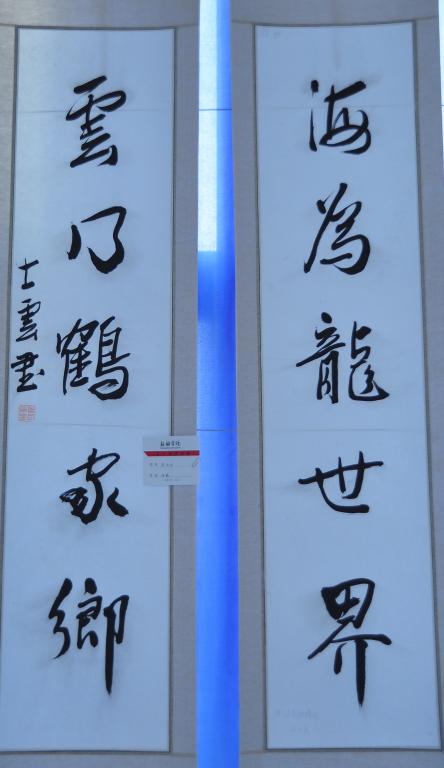 海為龍世界
雲乃鶴家鄉
士雲書